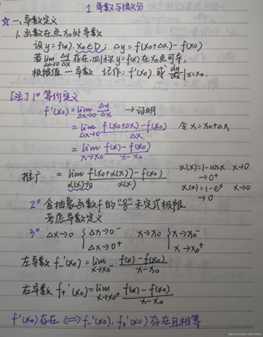 1 导数与微分
☆一、导数定义
1. 函数在点x₀处导数
设y=f(x), x₀∈D, Δy=f(x₀+Δx)-f(x₀)
若 lim Δx→0 Δy/Δx 存在, 则称y=f(x)在x₀点可导,
极限值—导数 记作: f'(x₀) 或 dy/dx|x=x₀.
[注] 1° 等价定义
f'(x₀)=lim Δx→0 Δy/Δx
=lim Δx→0 f(x₀+Δx)-f(x₀)/Δx 令 x=x₀+Δx
=lim x→x₀ f(x)-f(x₀)/x-x₀
推广 =lim α(x)→0 f(x₀+α(x))-f(x₀)/α(x) α(x)=1-cosx x→0
→0⁺
α(x)=1-eˣ x→0
→0
2° 含抽象函数f的 "0/0" 未定式极限
考虑导数定义
3° Δx→0 { Δx→0⁻ Δx→0⁺ x→x₀ { x→x₀⁻ x→x₀⁺
左导数 f₋'(x₀)=lim x→x₀⁻ f(x)-f(x₀)/x-x₀
右导数 f₊'(x₀)=lim x→x₀⁺ f(x)-f(x₀)/x-x₀
f'(x₀)存在 ⟺ f₋'(x₀), f₊'(x₀) 存在且相等